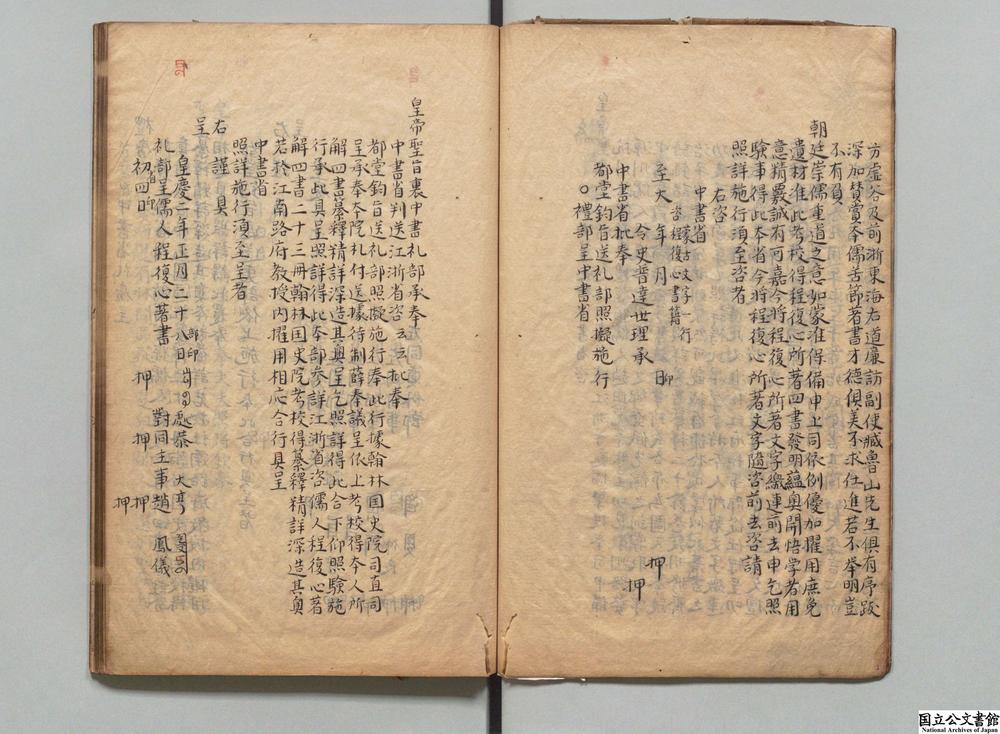 方虛谷及前浙東海右道廉訪副使臧魯山先生俱有序跋
深加賛賞本儒苦節著書才德俱美不求仕進若不舉明豈
不有負
朝
廷崇儒重道之意如蒙准保備申上司依例優加擢用庶免
遺材准此考校得程復心所著四書發明蘊奥開悟学者用
意精覈誠有可嘉今將程復心所著文字繳連前去申乞照
驗事得此本省今將程復心所著文字隨咨前去咨請
照詳施行須至咨者
右咨
中書省
蒙古文字一行
咨程復心書籍
至大 年 月 日印 押
令史普達世理承 押
中書省批奉
都堂鈞旨送礼部照擬施行
○禮部呈中書省
皇帝聖旨裏中書礼部承奉
中書省判送江浙省咨云云批奉
都堂鈞旨送礼部照擬施行奉此行據翰林国史院司直司
呈承奉本院札付送據待制薛奉議呈依上考校得本人所
解四書纂釋精詳深造其奥呈乞照詳得此合下仰照驗施
行承此具呈照詳得此本部參詳江浙省咨儒人程復心著
解四書二十三冊翰林国史院考校得纂釋精詳深造其奥
若於江南路府教授内擢用相應合行具呈
中書省
照詳施行須至呈者
右謹具
呈
皇慶二年正月二十八日
部印
礼部呈儒人程復心著書 對同主事趙 鳳儀
初四日印 押 押 押 押
國立公文書館
National Archives of Japan